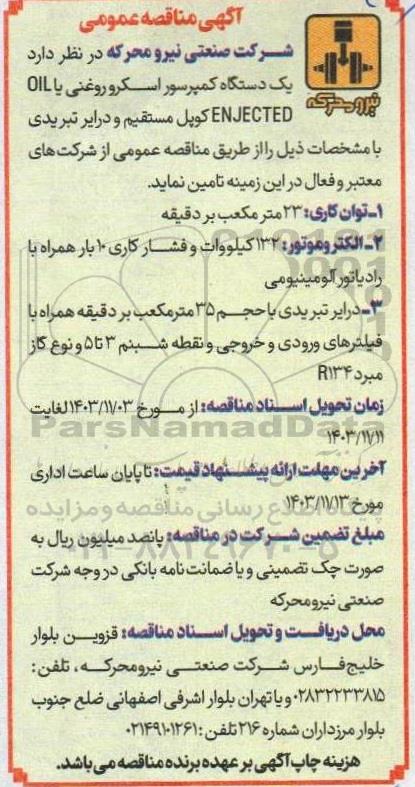 آگهی مناقصه عمومی
نیرو محرکه
شرکت صنعتی نیرو محرکه در نظر دارد
یک دستگاه کمپرسور اسکرو روغنی یا OIL
ENJECTED کوپل مستقیم و درایر تبریدی
با مشخصات ذیل را از طریق مناقصه عمومی از شرکت‌های
معتبر و فعال در این زمینه تامین نماید.
۱ـ توان کاری: ۲۳ متر مکعب بر دقیقه
۲ـ الکتروموتور: ۱۳۲ کیلووات و فشار کاری ۱۰ بار همراه با
رادیاتور آلومینیومی
۳ـ درایر تبریدی با حجم ۳۵ مترمکعب بر دقیقه همراه با
فیلترهای ورودی و خروجی و نقطه شبنم ۳ تا ۵ و نوع گاز
مبرد R۱۳۴
زمان تحویل اسناد مناقصه: از مورخ ۱۴۰۳/۱۱/۰۳ لغایت
۱۴۰۳/۱۱/۱۱
ParsNamadData
آخرین مهلت ارائه پیشنهاد قیمت: تا پایان ساعت اداری
مورخ ۱۴۰۳/۱۱/۱۳
پایگاه اطلاع رسانی مناقصه و مزایده
مبلغ تضمین شرکت در مناقصه: پانصد میلیون ریال به
۰۲۱-۸۸۳۴۹۶۷۰-۵
صورت چک تضمینی و یا ضمانت نامه بانکی در وجه شرکت
صنعتی نیرومحرکه
محل دریافت و تحویل اسناد مناقصه: قزوین بلوار
خلیج فارس شرکت صنعتی نیرومحرکه، تلفن:
۰۲۸۳۲۲۳۳۸۱۵ و یا تهران بلوار اشرفی اصفهانی ضلع جنوب
بلوار مرزداران شماره ۲۱۶ تلفن: ۰۲۱۴۹۱۰۱۲۶۱
هزینه چاپ آگهی بر عهده برنده مناقصه می‌باشد.